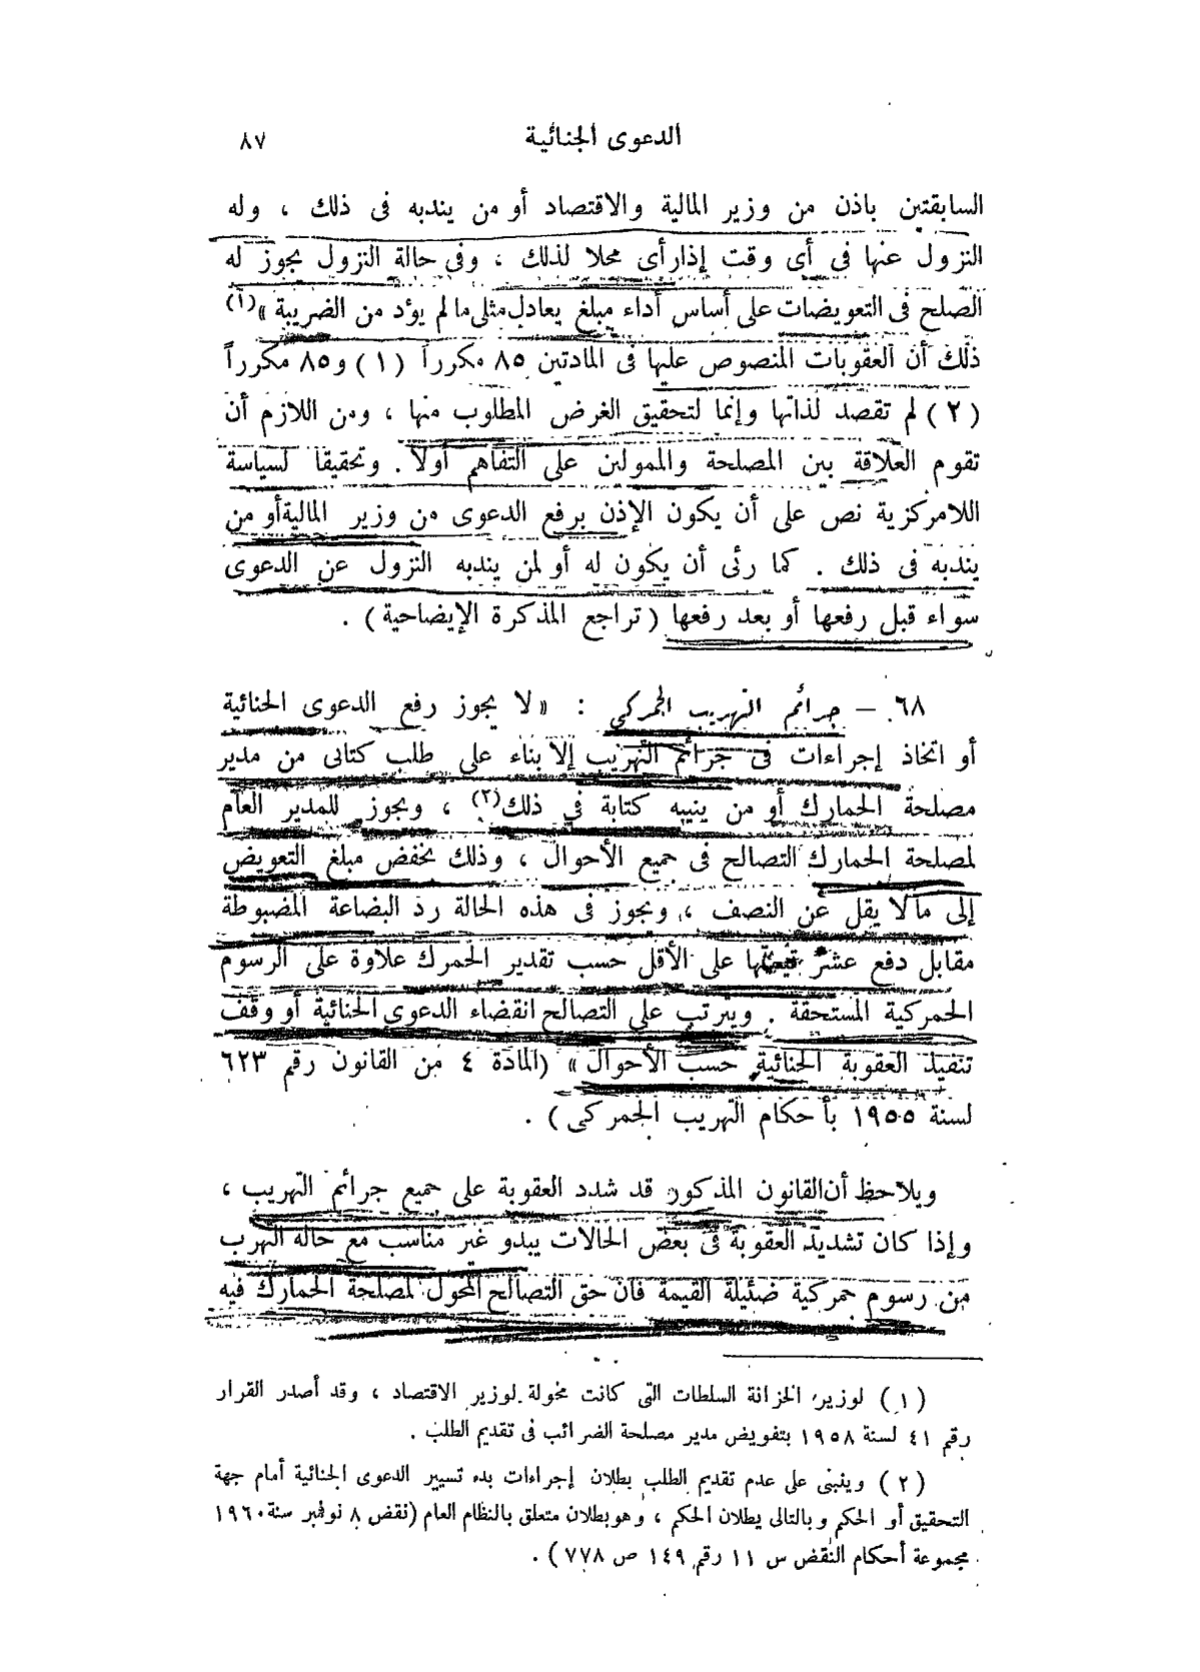 الدعوى الجنائية ٨٧
السابقتين باذن من وزير المالية والاقتصاد أو من يندبه فى ذلك ، وله
النزول عنها فى أى وقت إذا رأى محلا لذلك ، وفى حالة النزول يجوز له
الصلح فى التعويضات على أساس أداء مبلغ يعادل مثلى ما لم يؤد من الضريبة »(١)
ذلك أن العقوبات المنصوص عليها فى المادتين ٨٥ مكرراً (١) و ٨٥ مكرراً
(٢) لم تقصد لذاتها وإنما لتحقيق الغرض المطلوب منها ، ومن اللازم أن
تقوم العلاقة بين المصلحة والممولين على التفاهم أولا . وتحقيقا لسياسة
اللامركزية نص على أن يكون الإذن برفع الدعوى من وزير المالية أو من
يندبه فى ذلك . كما رئى أن يكون له أو لمن يندبه النزول عن الدعوى
سواء قبل رفعها أو بعد رفعها (تراجع المذكرة الإيضاحية) .
٦٨ – جرائم التهريب الجمركى : « لا يجوز رفع الدعوى الجنائية
أو اتخاذ إجراءات فى جرائم التهريب إلا بناء على طلب كتابى من مدير
مصلحة الجمارك أو من ينيبه كتابة فى ذلك(٢) ، ويجوز للمدير العام
لمصلحة الجمارك التصالح فى جميع الأحوال ، وذلك بخفض مبلغ التعويض
إلى مالا يقل عن النصف ، ويجوز فى هذه الحالة رد البضاعة المضبوطة
مقابل دفع عشر قيمتها على الأقل حسب تقدير الجمرك علاوة على الرسوم
الجمركية المستحقة . ويترتب على التصالح انقضاء الدعوى الجنائية أو وقف
تنفيذ العقوبة الجنائية حسب الأحوال » (المادة ٤ من القانون رقم ٦٢٣
لسنة ١٩٥٥ بأحكام التهريب الجمركى) .
ويلاحظ أن القانون المذكور قد شدد العقوبة على جميع جرائم التهريب ،
وإذا كان تشديد العقوبة فى بعض الحالات يبدو غير مناسب مع حالة التهرب
من رسوم جمركية ضئيلة القيمة فان حق التصالح المخول لمصلحة الجمارك فيه
(١) لوزير الخزانة السلطات التى كانت مخولة لوزير الاقتصاد ، وقد أصدر القرار
رقم ٤١ لسنة ١٩٥٨ بتفويض مدير مصلحة الضرائب فى تقديم الطلب .
(٢) وينبنى على عدم تقديم الطلب بطلان إجراءات بدء تسيير الدعوى الجنائية أمام جهة
التحقيق أو الحكم وبالتالى بطلان الحكم ، وهو بطلان متعلق بالنظام العام (نقض ٨ نوفمبر سنة ١٩٦٠
مجموعة أحكام النقض س ١١ رقم ١٤٩ ص ٧٧٨) .